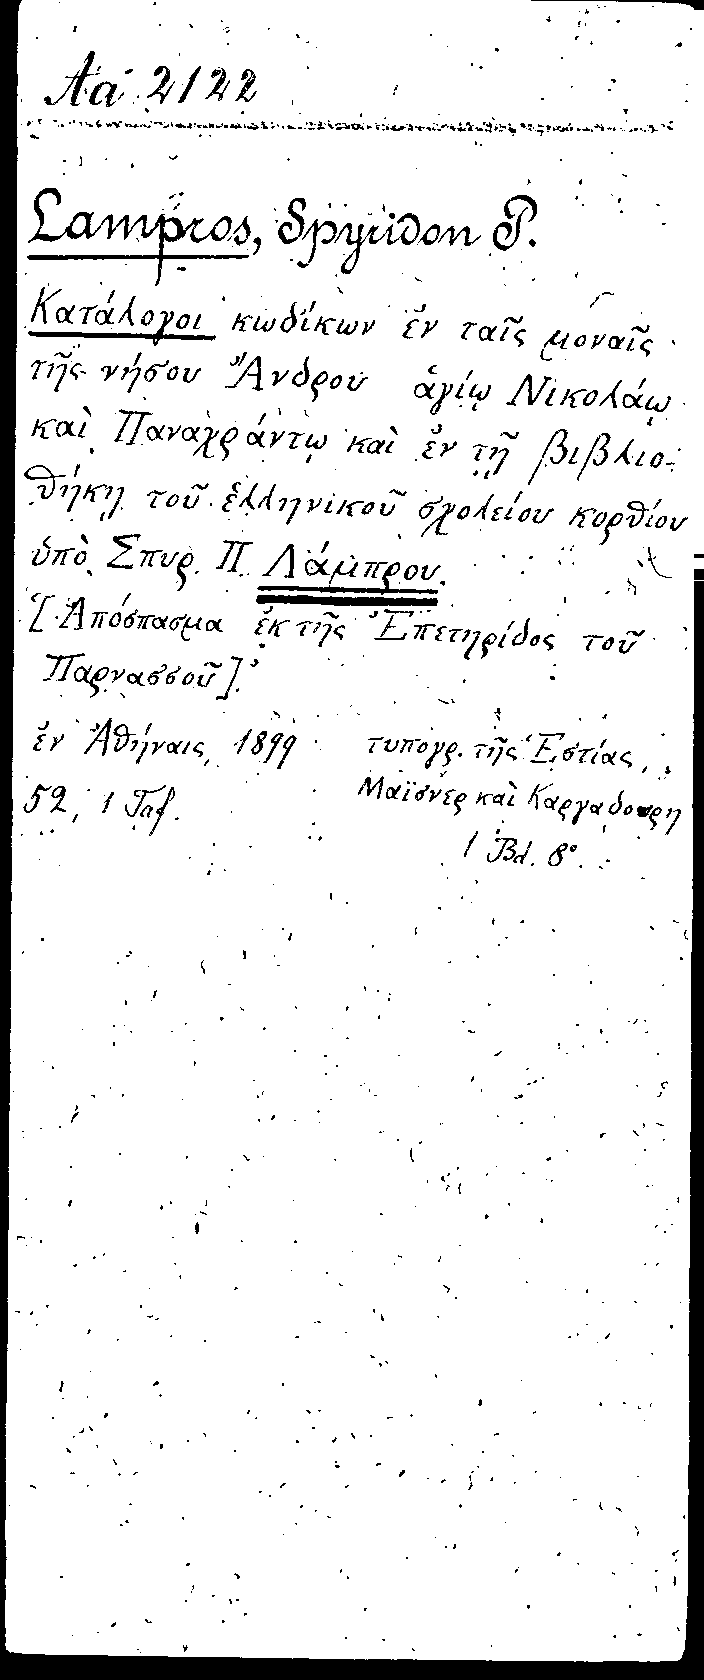 Aa 2122
Lampros, Spyridon P.
Κατάλογοι κωδίκων ἐν ταῖς μοναῖς
τῆς νήσου Ἄνδρου ἁγίῳ Νικολάῳ
καὶ Παναχράντῳ καὶ ἐν τῇ βιβλιο-
θήκῃ τοῦ ἑλληνικοῦ σχολείου κορθίου
ὑπὸ Σπυρ. Π. Λάμπρου.
[Ἀπόσπασμα ἐκ τῆς Ἐπετηρίδος τοῦ
Παρνασσοῦ].
ἐν Ἀθήναις, 1899 τυπογρ. τῆς Ἑστίας,
Μαϊσνερ καὶ Καργαδουρη
52, 1 Taf.
1 Bd. 8°.